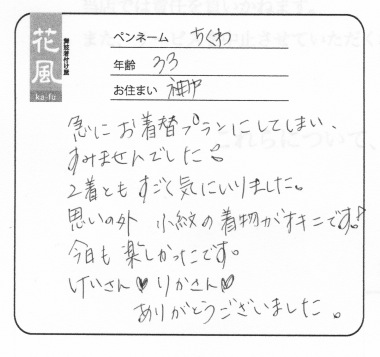 花風
舞妓着付け屋
ka-fu
ペンネーム ちくわ
年齢 33
お住まい 神戸
急にお着替プランにしてしまい、
すみませんでした
2着とも すごく気にいりました。
思いの外 小紋の着物がスキニです!
今日も楽しかったです。
けいさん♥ りかさん♥
ありがとうございました。